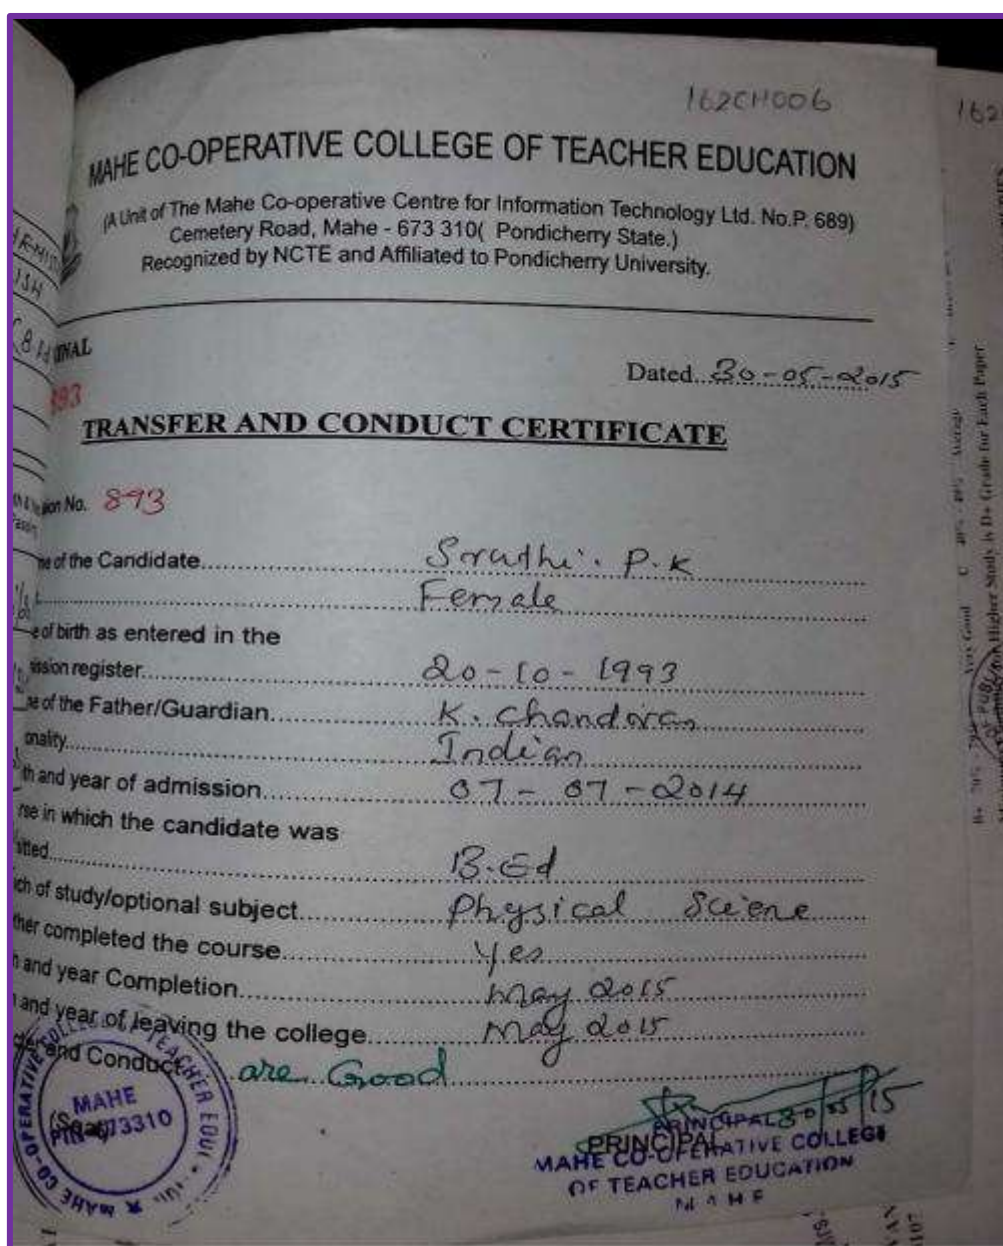 162CH006
MAHE CO-OPERATIVE COLLEGE OF TEACHER EDUCATION
(A Unit of The Mahe Co-operative Centre for Information Technology Ltd. No.P. 689)
Cemetery Road, Mahe - 673 310( Pondicherry State.)
Recognized by NCTE and Affiliated to Pondicherry University.
INAL
Dated..30-05-2015
893
TRANSFER AND CONDUCT CERTIFICATE
sion No. 893
me of the Candidate..... Sruthi. P.K
Female
e of birth as entered in the
ission register..... 20-10-1993
me of the Father/Guardian..... K. Chandran
onality..... Indian
th and year of admission..... 07-07-2014
rse in which the candidate was
itted..... B.Ed
ch of study/optional subject..... Physical Sciene
ther completed the course..... Yes
h and year Completion..... May 2015
and year of leaving the college..... May 2015
and Conduct are Good
MAHE
PIN-673310
(Seal)
30/05/15
PRINCIPAL
PRINCIPAL
MAHE CO-OPERATIVE COLLEGE
OF TEACHER EDUCATION
MAHE
162
Very Good
Average
Higher Study is D+ Grade for Each Paper